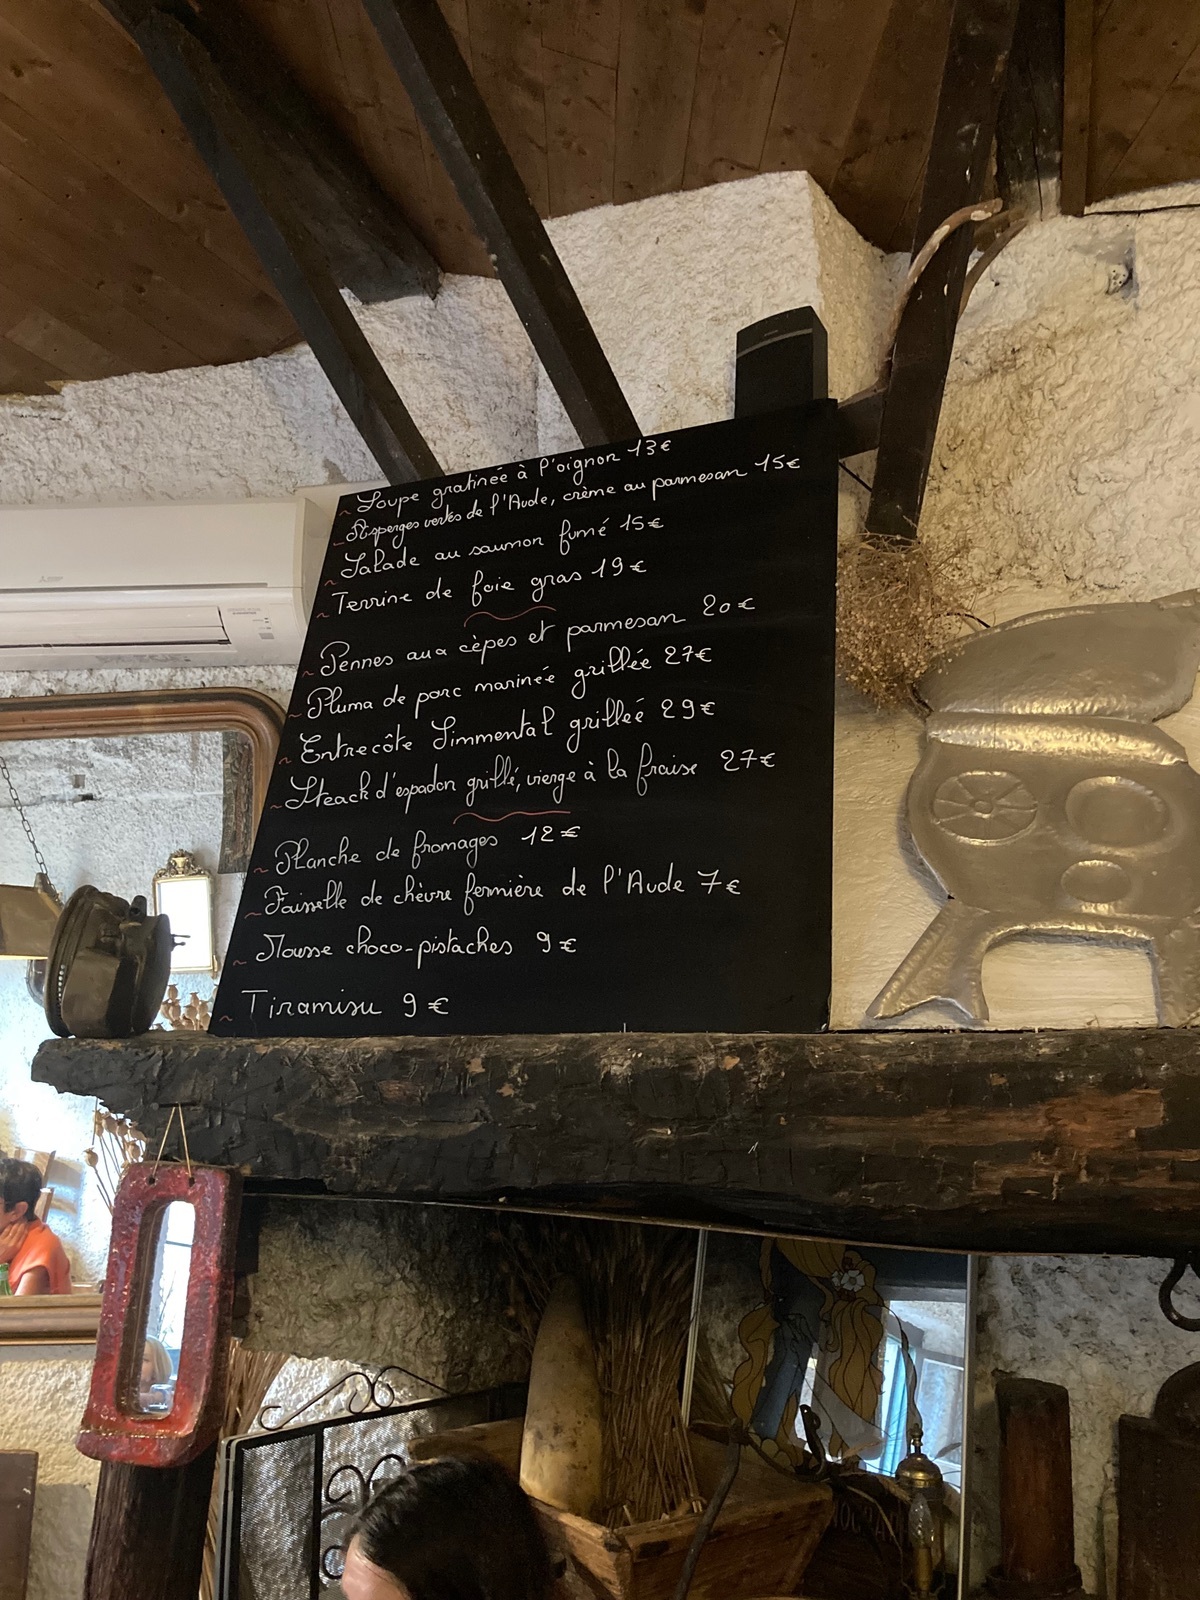 ~ Soupe gratinée à l'oignon 13€
~ Asperges vertes de l'Aude, crème au parmesan 15€
~ Salade au saumon fumé 15€
~ Terrine de foie gras 19€
~ Pennes aux cèpes et parmesan 20€
~ Pluma de porc marinée grillée 27€
~ Entrecôte Simmental grillée 29€
~ Steack d'espadon grillé, vierge à la fraise 27€
~ Planche de fromages 12€
~ Faisselle de chèvre fermière de l'Aude 7€
~ Mousse choco-pistaches 9€
~ Tiramisu 9€